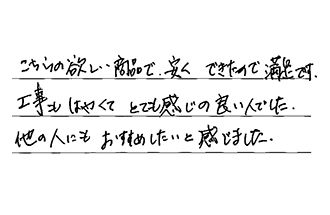 こちらの欲しい商品で、安く できたので満足です.
工事もはやくて とても感じの良い人でした.
他の人にも おすすめしたいと感じました.